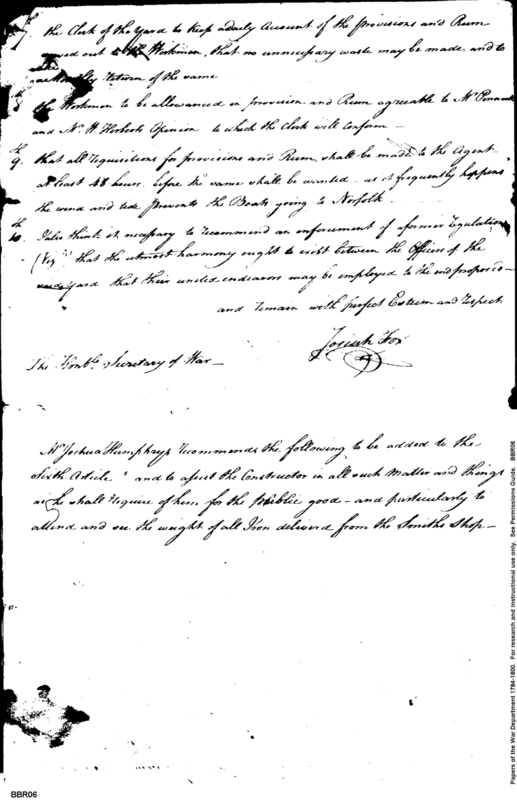 7. the Clerk of the Yard to keep a daily Account of the provisions and Rum
out to the Workmen, that no unnecessary waste may be made, and to
Return of the same
the Workmen to be allowanced in provision and Rum agreable to Mr Pennock
and Mr W. Herberts Opinion to which the Clerk will conform –
th
9. that all requisitions for provisions and Rum, shall be made to the Agent
at least 48 hours before the same shall be wanted – as it frequently happens
the wind and tide prevents the Boats going to Norfolk.
th
10. I also think it necessary to recommend an enforcement of a former regulation
(Viz) "that the utmost harmony ought to exist between the Officers of the
yard that their united endeavors may be employed to the end proposed –
and remain with perfect Esteem and respect
Josiah Fox
The Honble. Secretary of War –
Mr Joshua Humphreys recommends the following to be added to the
Sixth Article " and to assist the Constructor in all such Matter and things
as he shall require of him for the Public good – and particularly to
attend and see the weight of all Iron deliverd from the Smiths Shop –
BBR06
Papers of the War Department 1784-1800. For research and instructional use only. See Permissions Guide. BBR06